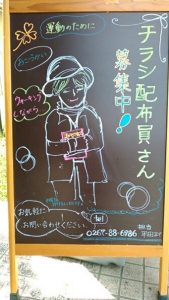 チラシ配布員さん
募集中!
運動のために
おこづかい
ウォーキング
しながら
お気軽に
お問い合わせください。
tel
0267-88-6986
担当